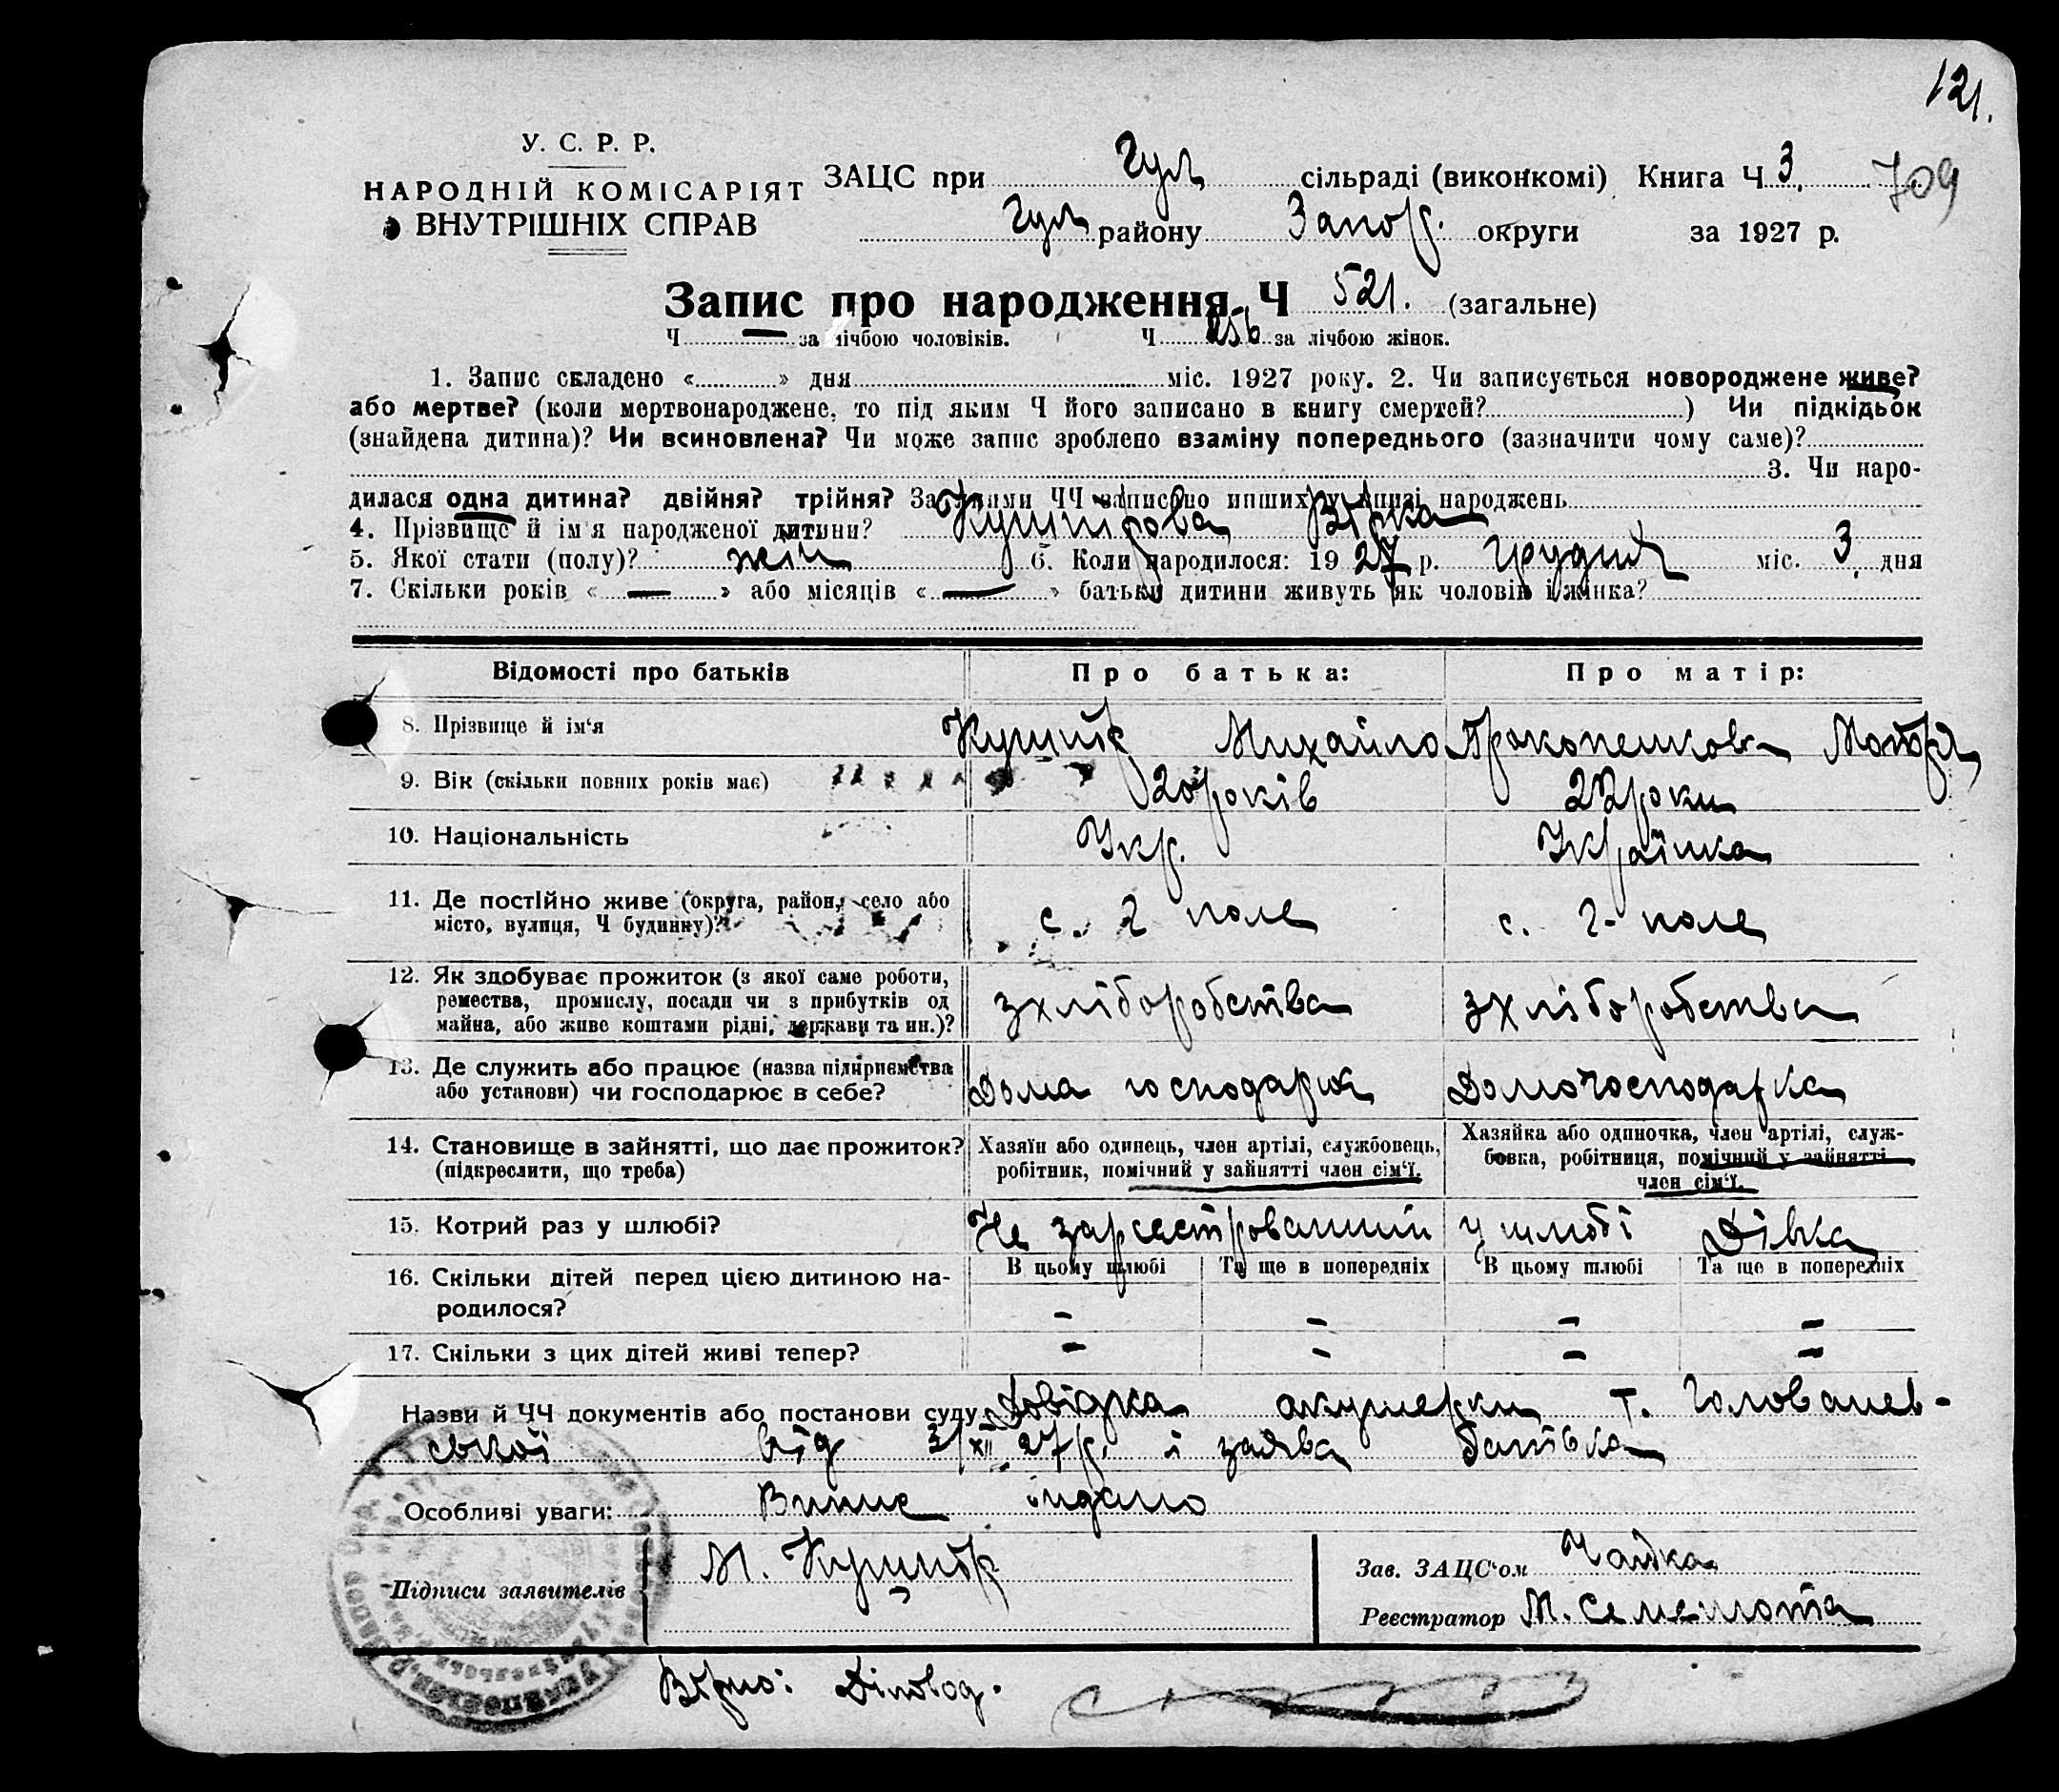 121.
У. С. Р. Р.
НАРОДНІЙ КОМІСАРІЯТ
ВНУТРІШНІХ СПРАВ
ЗАЦС при Гул сільраді (виконкомі) Книга Ч 3. 709
Гул району Запор. округи за 1927 р.
Запис про народження Ч 521. (загальне)
Ч — за лічбою чоловіків. Ч 256 за лічбою жінок.
1. Запис складено «» дня міс. 1927 року. 2. Чи записується новороджене живе?
або мертве? (коли мертвонароджене, то під яким Ч його записано в книгу смертей?) Чи підкідьок
(знайдена дитина)? Чи всиновлена? Чи може запис зроблено взаміну попереднього (зазначити чому саме)?
3. Чи наро-
дилася одна дитина? двійня? трійня? За якими ЧЧ записано инших у книзі народжень
4. Прізвище й ім'я народженої дитини? Кушнірова Вірка
5. Якої стати (полу)? жін 6. Коли народилося: 1927 р. Грудня міс. 3 дня
7. Скільки років « — » або місяців « — » батьки дитини живуть як чоловік і жінка?
Відомості про батьків Про батька: Про матір:
8. Прізвище й ім'я Кушнір Михайло Прокопенкова Мотря
9. Вік (скільки повних років має) 20 років 22 роки
10. Національність Укр. Українка
11. Де постійно живе (округа, район, село або
місто, вулиця, Ч будинку)? с. Г поле с. Г- поле
12. Як здобуває прожиток (з якої саме роботи,
ремества, промислу, посади чи з прибутків од
майна, або живе коштами рідні, держави та ин.)? з хліборобства з хліборобства
13. Де служить або працює (назва підприємства
або установи) чи господарює в себе? Дома господарює Домогосподарка
14. Становище в зайнятті, що дає прожиток?
(підкреслити, що треба)
Хазяїн або одинець, член артілі, службовець,
робітник, помічний у зайнятті член сім'ї.
Хазяйка або одиночка, член артілі, служ-
бовка, робітниця, помічний у зайнятті
член сім'ї.
15. Котрий раз у шлюбі? Не зареєстрований у шлюбі Дівка
16. Скільки дітей перед цією дитиною на-
родилося?
В цьому шлюбі Та ще в попередніх В цьому шлюбі Та ще в попередніх
– – – –
17. Скільки з цих дітей живі тепер? – – – –
Назви й ЧЧ документів або постанови суду Довідка акушерки т. Голованев-
ської від 3/XII 27 р. і заява батька
Особливі уваги: Випис видано
Підписи заявителів М. Кушнір
Зав. ЗАЦС'ом Чайка
Реєстратор М. Семенота
Вірно: Діловод.